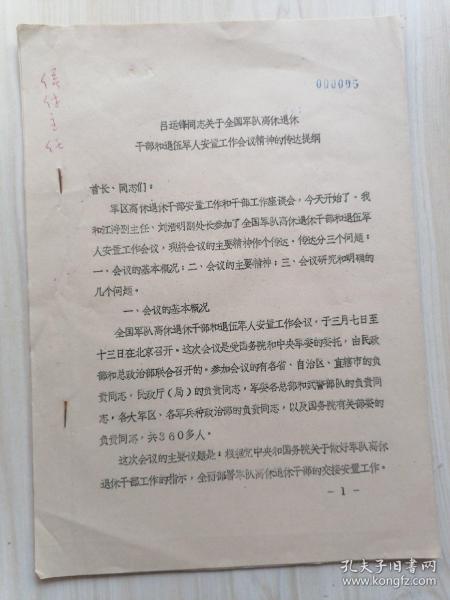 000095
吕运锋同志关于全国军队离休退休
干部和退伍军人安置工作会议精神的传达提纲
首长、同志们:
军区离休退休干部安置工作和干部工作座谈会,今天开始了。我
和江涛副主任、刘浩明副处长参加了全国军队离休退休干部和退伍军
人安置工作会议,我将会议的主要精神作个传达。传达分三个问题:
一、会议的基本概况;二、会议的主要精神;三、会议研究和明确的
几个问题。
一、会议的基本概况
全国军队离休退休干部和退伍军人安置工作会议,于三月七日至
十三日在北京召开。这次会议是受国务院和中央军委的委托,由民政
部和总政治部联合召开的。参加会议的有各省、自治区、直辖市的负
责同志,民政厅(局)的负责同志,军委各总部和武警部队的负责同
志,各大军区、各军兵种政治部的负责同志,以及国务院有关部委的
负责同志,共360多人。
这次会议的主要议题是:根据党中央和国务院关于做好军队离休
退休干部工作的指示,全面部署军队离休退休干部的交接安置工作。
-1-
孔夫子旧书网
www.kongfz.com